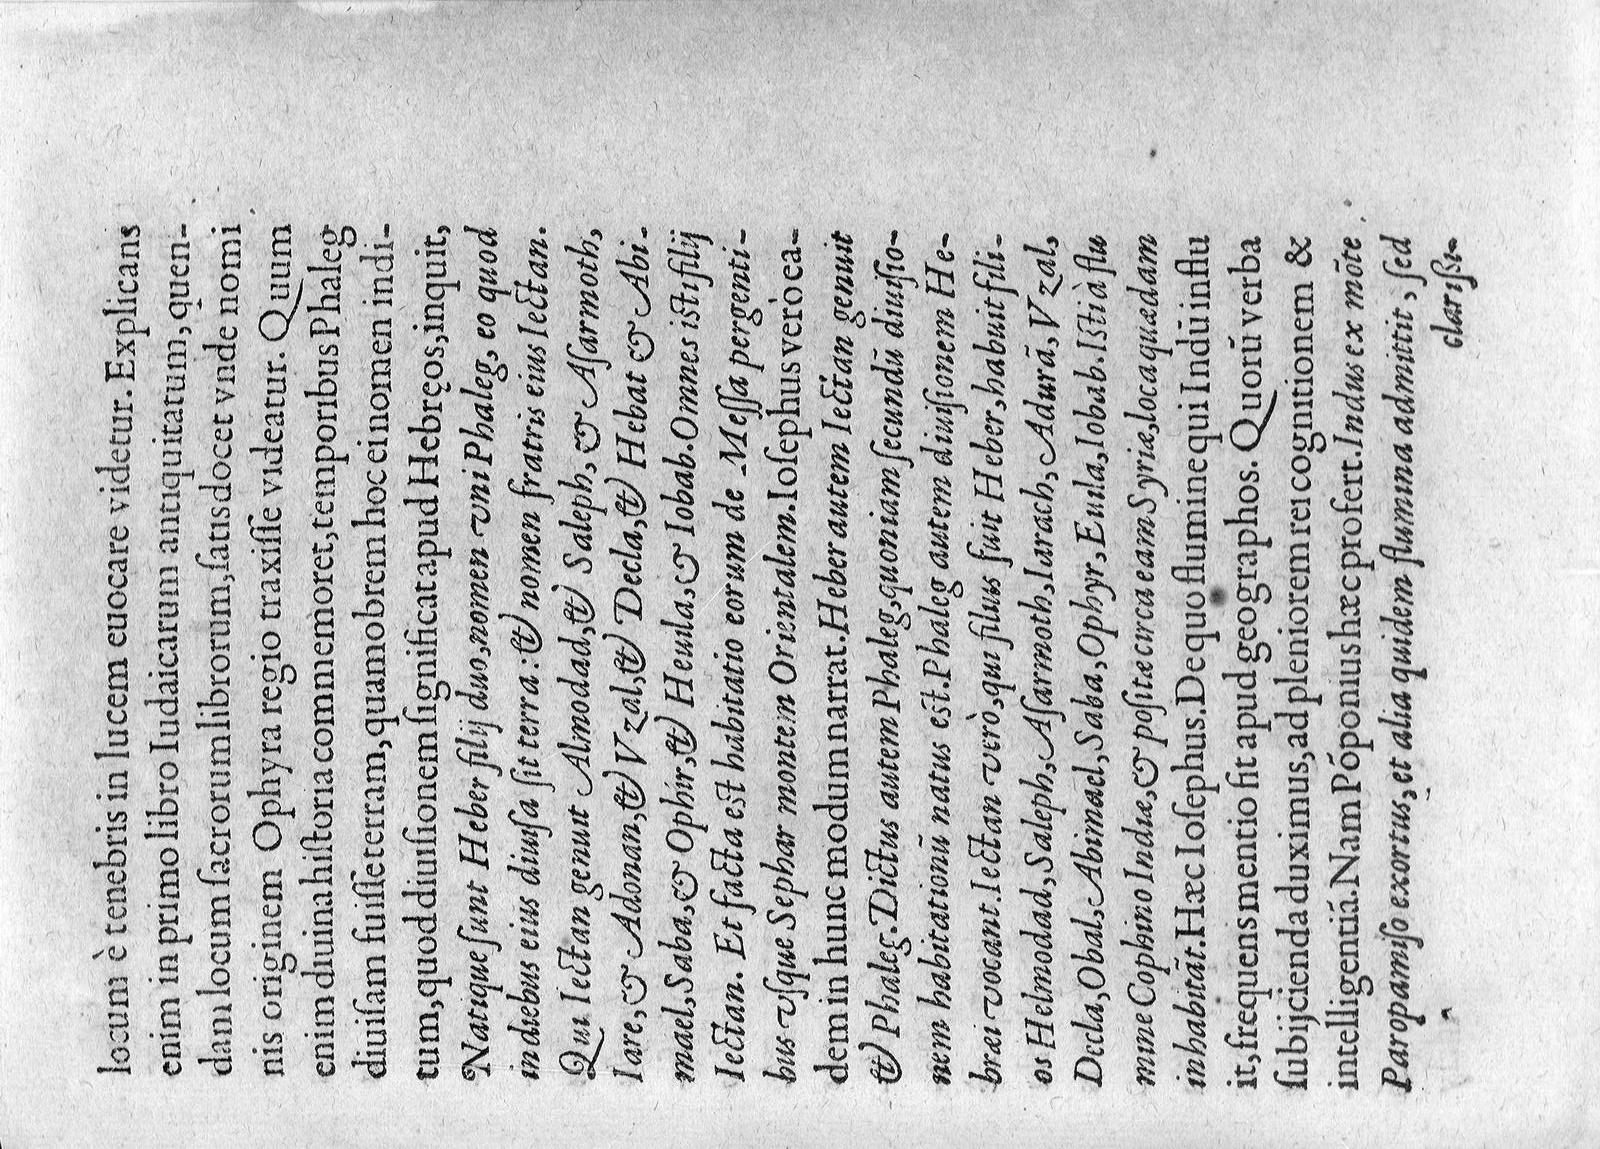 locum è tenebris in lucem euocare videtur. Explicans
enim in primo libro Iudaicarum antiquitatum, quen-
dam locum ſacrorum librorum, ſatis docet vnde nomi
nis originem Ophyra regio traxiſſe videatur. Quum
enim diuina hiſtoria commemoret, temporibus Phaleg
diuiſam fuiſſe terram, quamobrem hoc ei nomen indi-
tum, quod diuiſionem ſignificat apud Hebręos, inquit,
Natique ſunt Heber filij duo, nomen vni Phaleg, eo quod
in diebus eius diuiſa ſit terra: & nomen fratris eius Iectan.
Qui Iectan genuit Almodad, & Saleph, & Aſarmoth,
Iare, & Adonan, & Vzal, & Decla, & Hebat & Abi-
mael, Saba, & Ophir, & Heuila, & Iobab. Omnes iſti filij
Iectan. Et facta eſt habitatio eorum de Meſſa pergenti-
bus vſque Sephar montem Orientalem. Ioſephus verò ea-
dem in hunc modum narrat. Heber autem Iectan genuit
& Phaleg. Dictus autem Phaleg, quoniam ſecundũ diuiſio-
nem habitationũ natus eſt. Phaleg autem diuiſionem He-
bræi vocant. Iectan verò, qui filius fuit Heber, habuit fili-
os Helmodad, Saleph, Aſarmoth, Iurach, Adurã, Vzal,
Decla, Obal, Abimael, Saba, Ophyr, Euila, Iobab. Iſti à flu
mine Cophino Indiæ, & poſitæ circa eam Syriæ, loca quædam
inhabitãt. Hæc Ioſephus. De quo flumine qui Indũ influ
it, frequens mentio fit apud geographos. Quorũ verba
ſubijcienda duximus, ad pleniorem rei cognitionem &
intelligentiã. Nam Põponius hæc profert. Indus ex mõte
Paropamiſo exortus, et alia quidem flumina admittit, ſed
clariſsi-